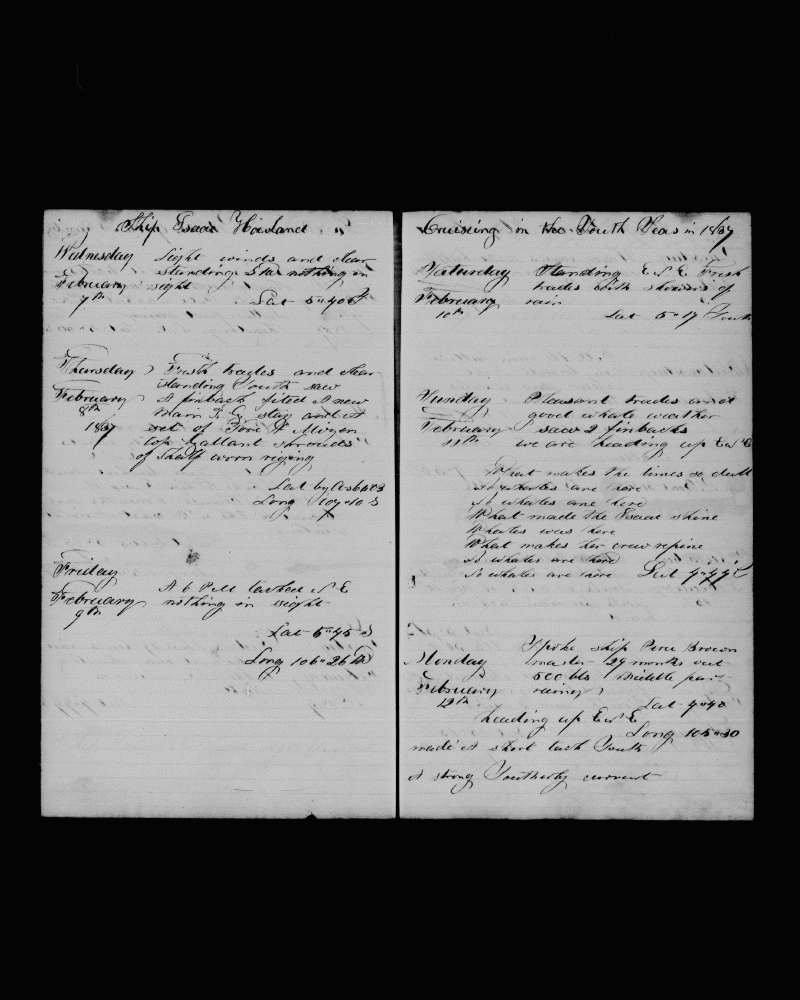 Ship Isaac Howland "
Wednesday light winds and clear
standing S nothing in
February sight
7th Lat 5"40 S
Thursday Fresh trades and clear
standing South saw
February A finback fited A new
8th Main T G stay and A
1867 set of Fore & Mizen
top gallant shrouds
of half worn riging
Lat by
Long 107"10
Friday
A 6 P M tacked N E
February nothing in sight
9th
Lat 5"45 S
Long 106"26 W
Cruising in the South Seas in 1867
Saturday Standing E N E Fresh
trades with showers of
February rain
10th Lat 5"17 South
Sunday Pleasant trades and
good whale weather
February saw 2 finbacks
11th we are heading up
What makes the times so dull
No whales are here
No whales are here
What made the Isaac shine
Whales was here
What makes her crew repine
No whales are here
No whales are here Lat 4"44
Spoke ship Peru Brown
Monday master 29 months out
500 bls Middle part
February rainey
12th Lat 4"40
heading up
Long 105"30
made A short tack South
A strong Southerly current